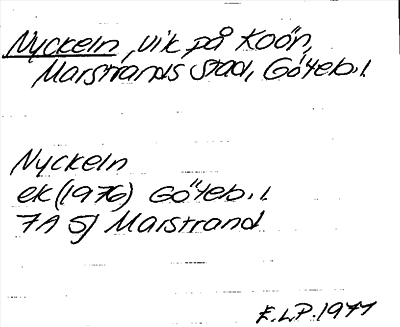 Nyckeln, vik på Koön,
Marstrands stad, Göteb. l.
Nyckeln
ek (1976) Göteb. l.
7A 5j Marstrand
E.L.P. 1977